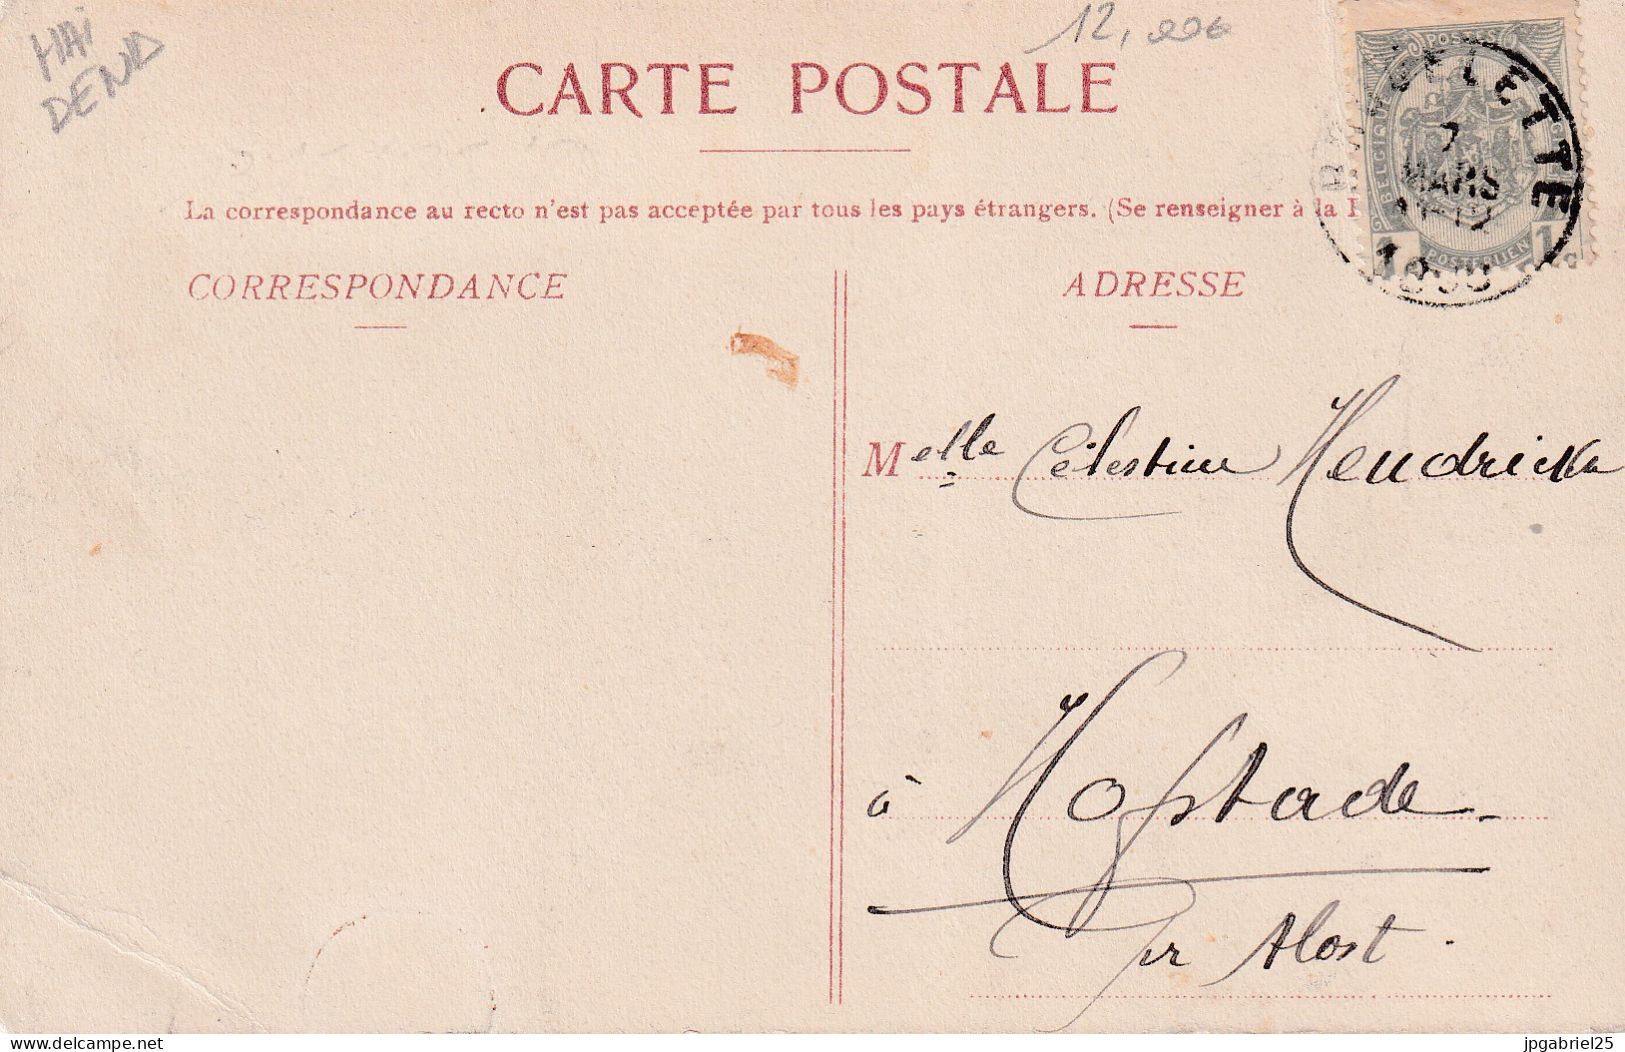 HAI
DEND
12,00€
CARTE POSTALE
La correspondance au recto n'est pas acceptée par tous les pays étrangers. (Se renseigner à la
CORRESPONDANCE
ADRESSE
POSTES
BELGIQUE
POSTERIJEN
1
1
BRUGELETTE
7
MARS
11-12
Melle Célestine Hendrickx
à Hofstade
pr Alost.
delcampe.net
jpgabriel25